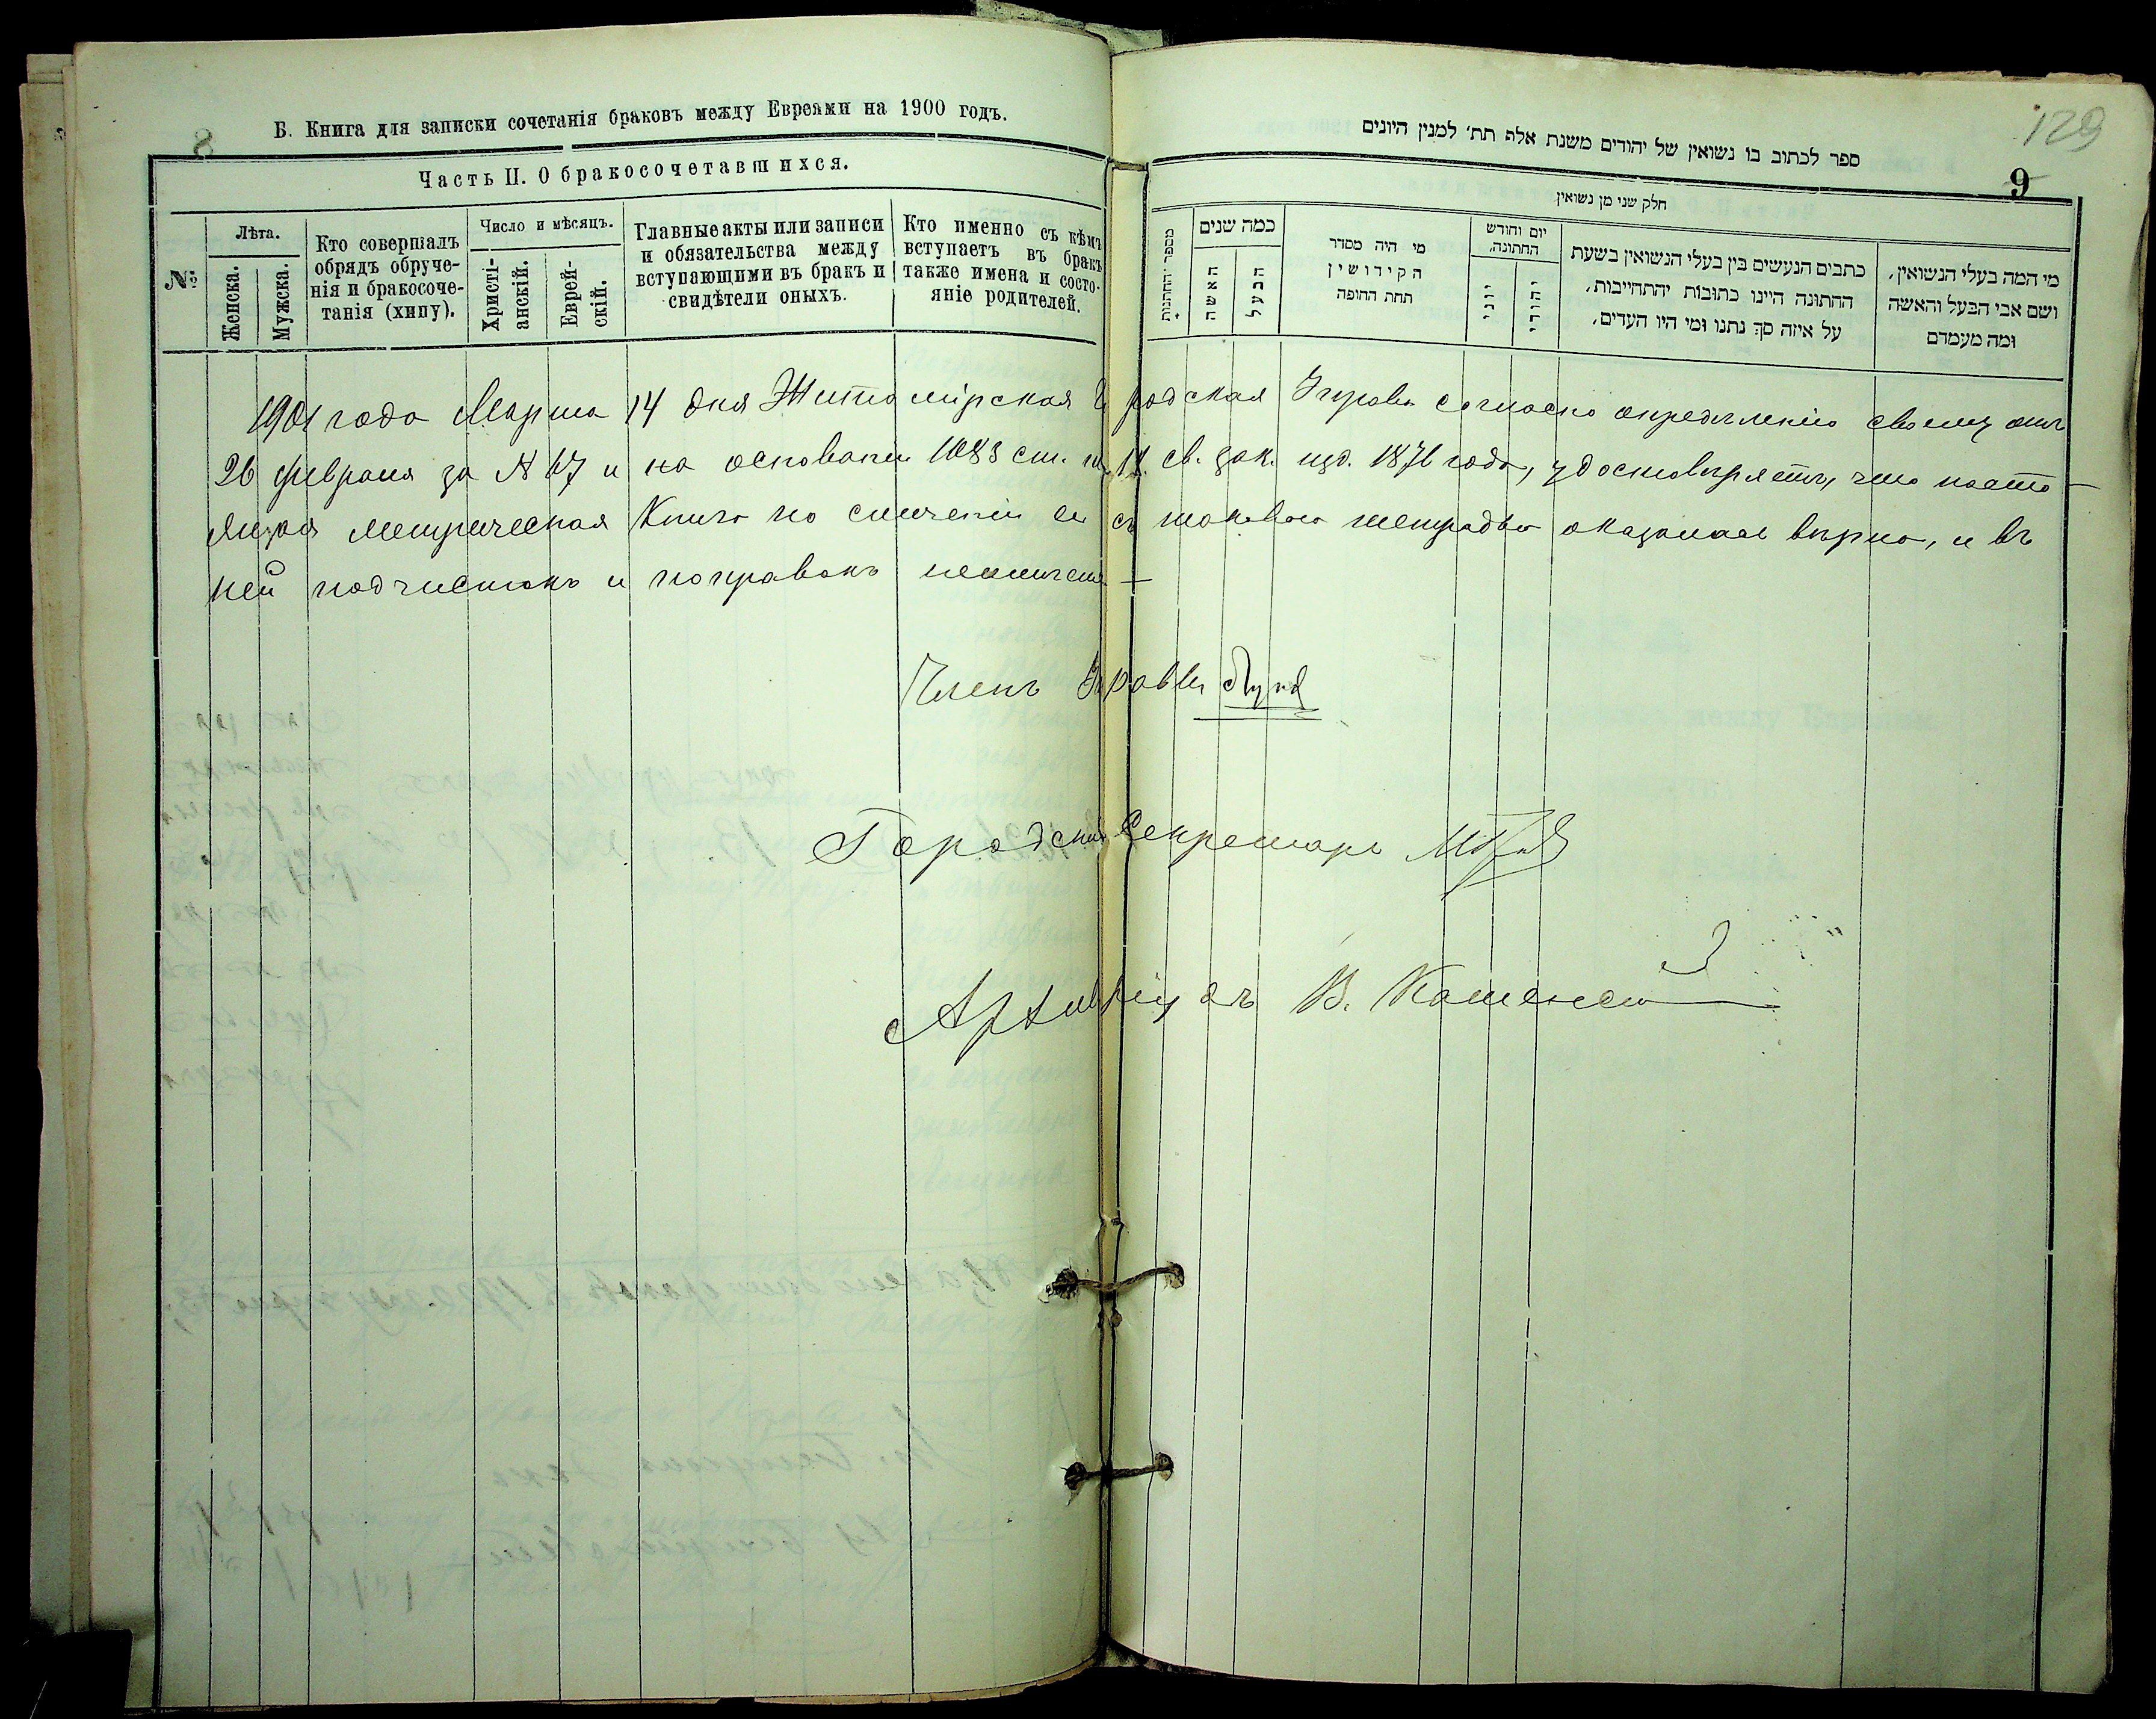 8
Б. Книга для записки сочетанія браковъ между Евреями на 1900 годъ.
Часть II. О бракосочетавшихся.
№
Лѣта.
Женска.
Мужска.
Кто совершалъ
обрядъ обруче-
нія и бракосоче-
танія (хипу).
Число и мѣсяцъ.
Христі-
анскій.
Еврей-
скій.
Главные акты или записи
и обязательства между
вступающими въ бракъ и
свидѣтели оныхъ.
Кто именно съ кѣмъ
вступаетъ въ бракъ
также имена и состо-
яніе родителей.
129
9
ספר לכתוב בו נשואין של יהודים משנת אלף תת׳ למנין היונים
חלק שני מן נשואין
מספר החתונות
כמה שנים
האשה
הבעל
מי היה מסדר
הקידושין
תחת החופה
יום וחודש
החתונה.
יוני
יהודי
כתבים הנעשים בין בעלי הנשואין בשעת
ההתונה היינו כתובות יהתחייבות,
על איזה סך נתנו ומי היו העדים,
מי המה בעלי הנשואין,
ושם אבי הבעל והאשה
ומה מעמדם
1901 года Марта 14 дня Житомірская Городская Управа согласно опредѣленію своему отъ
26 февраля за № 47 и на основаніи 1083 ст. св. зак. изд. 1876 года, удостовѣряетъ, что насто-
ящая метрическая Книга по сличеніи ея съ таковою тетрадью оказалась вѣрна, и въ
ней подчистокъ и поправокъ
Членъ Управы
Городской Секретарь
Архиваріусъ В.